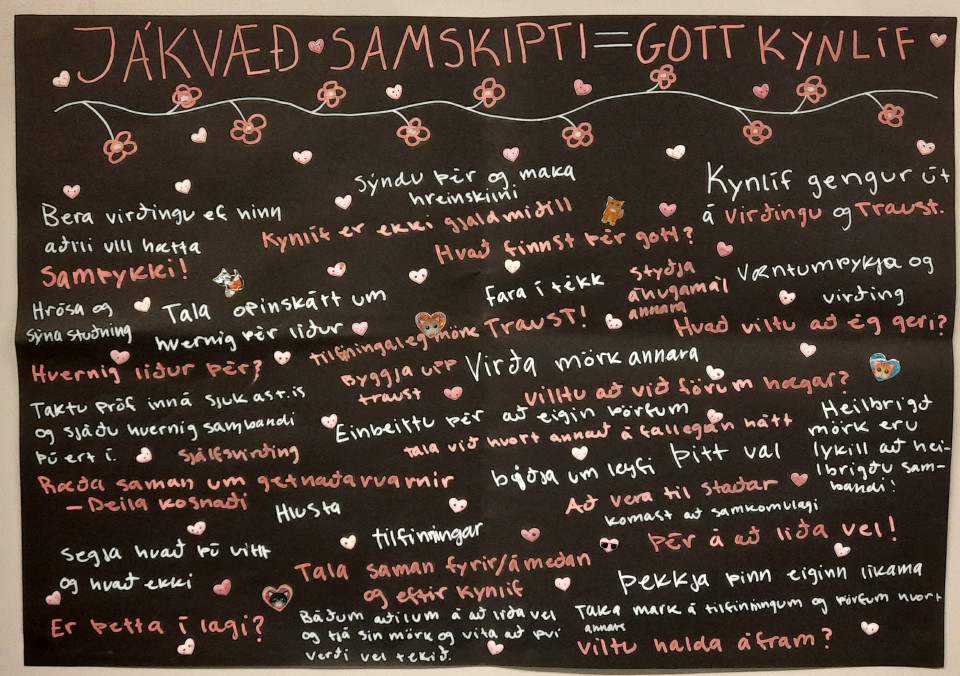 JÁKVÆÐ SAMSKIPTI = GOTT KYNLÍF
Bera virðingu ef hinn
aðili vill hætta
Samþykki!
Sýndu þér og maka
hreinskilni
Kynlíf er ekki gjaldmiðill
Hvað finnst þér gott?
Kynlíf gengur út
á virðingu og Traust.
Hrósa og
sýna stuðning
Tala opinskátt um
hvernig þér líður
Fara í tékk
styðja
áhugamál
annara
Væntumþykja og
virðing
Hvernig líður þér?
tilfinningaleg mörk
Traust!
Hvað viltu að ég geri?
Byggja upp
traust
Virða mörk annara
villtu að við förum hægar?
Taktu próf inná sjukast.is
og sjáðu hvernig sambandi
þú ert í.
sjálfsvirðing
Einbeittu þér að eigin þörfum
tala við hvort annað á fallegan hátt
Heilbrigð
mörk eru
lykill að hei-
lbrigðu sam-
bandi!
Ræða saman um getnaðarvarnir
- Deila kosnaði
biðja um leyfi
Þitt val
Að vera til staðar
komast að samkomulagi
Hlusta
tilfinningar
Þér á að líða vel!
Segja hvað þú vilt
og hvað ekki
Tala saman fyrir/ámeðan
og eftir kynlíf
Þekkja þinn eiginn líkama
Er þetta í lagi?
Báðum aðilum á að líða vel
og tjá sín mörk og vita að því
verði vel tekið.
Taka mark á tilfinningum og þörfum hvort
annars
viltu halda áfram?